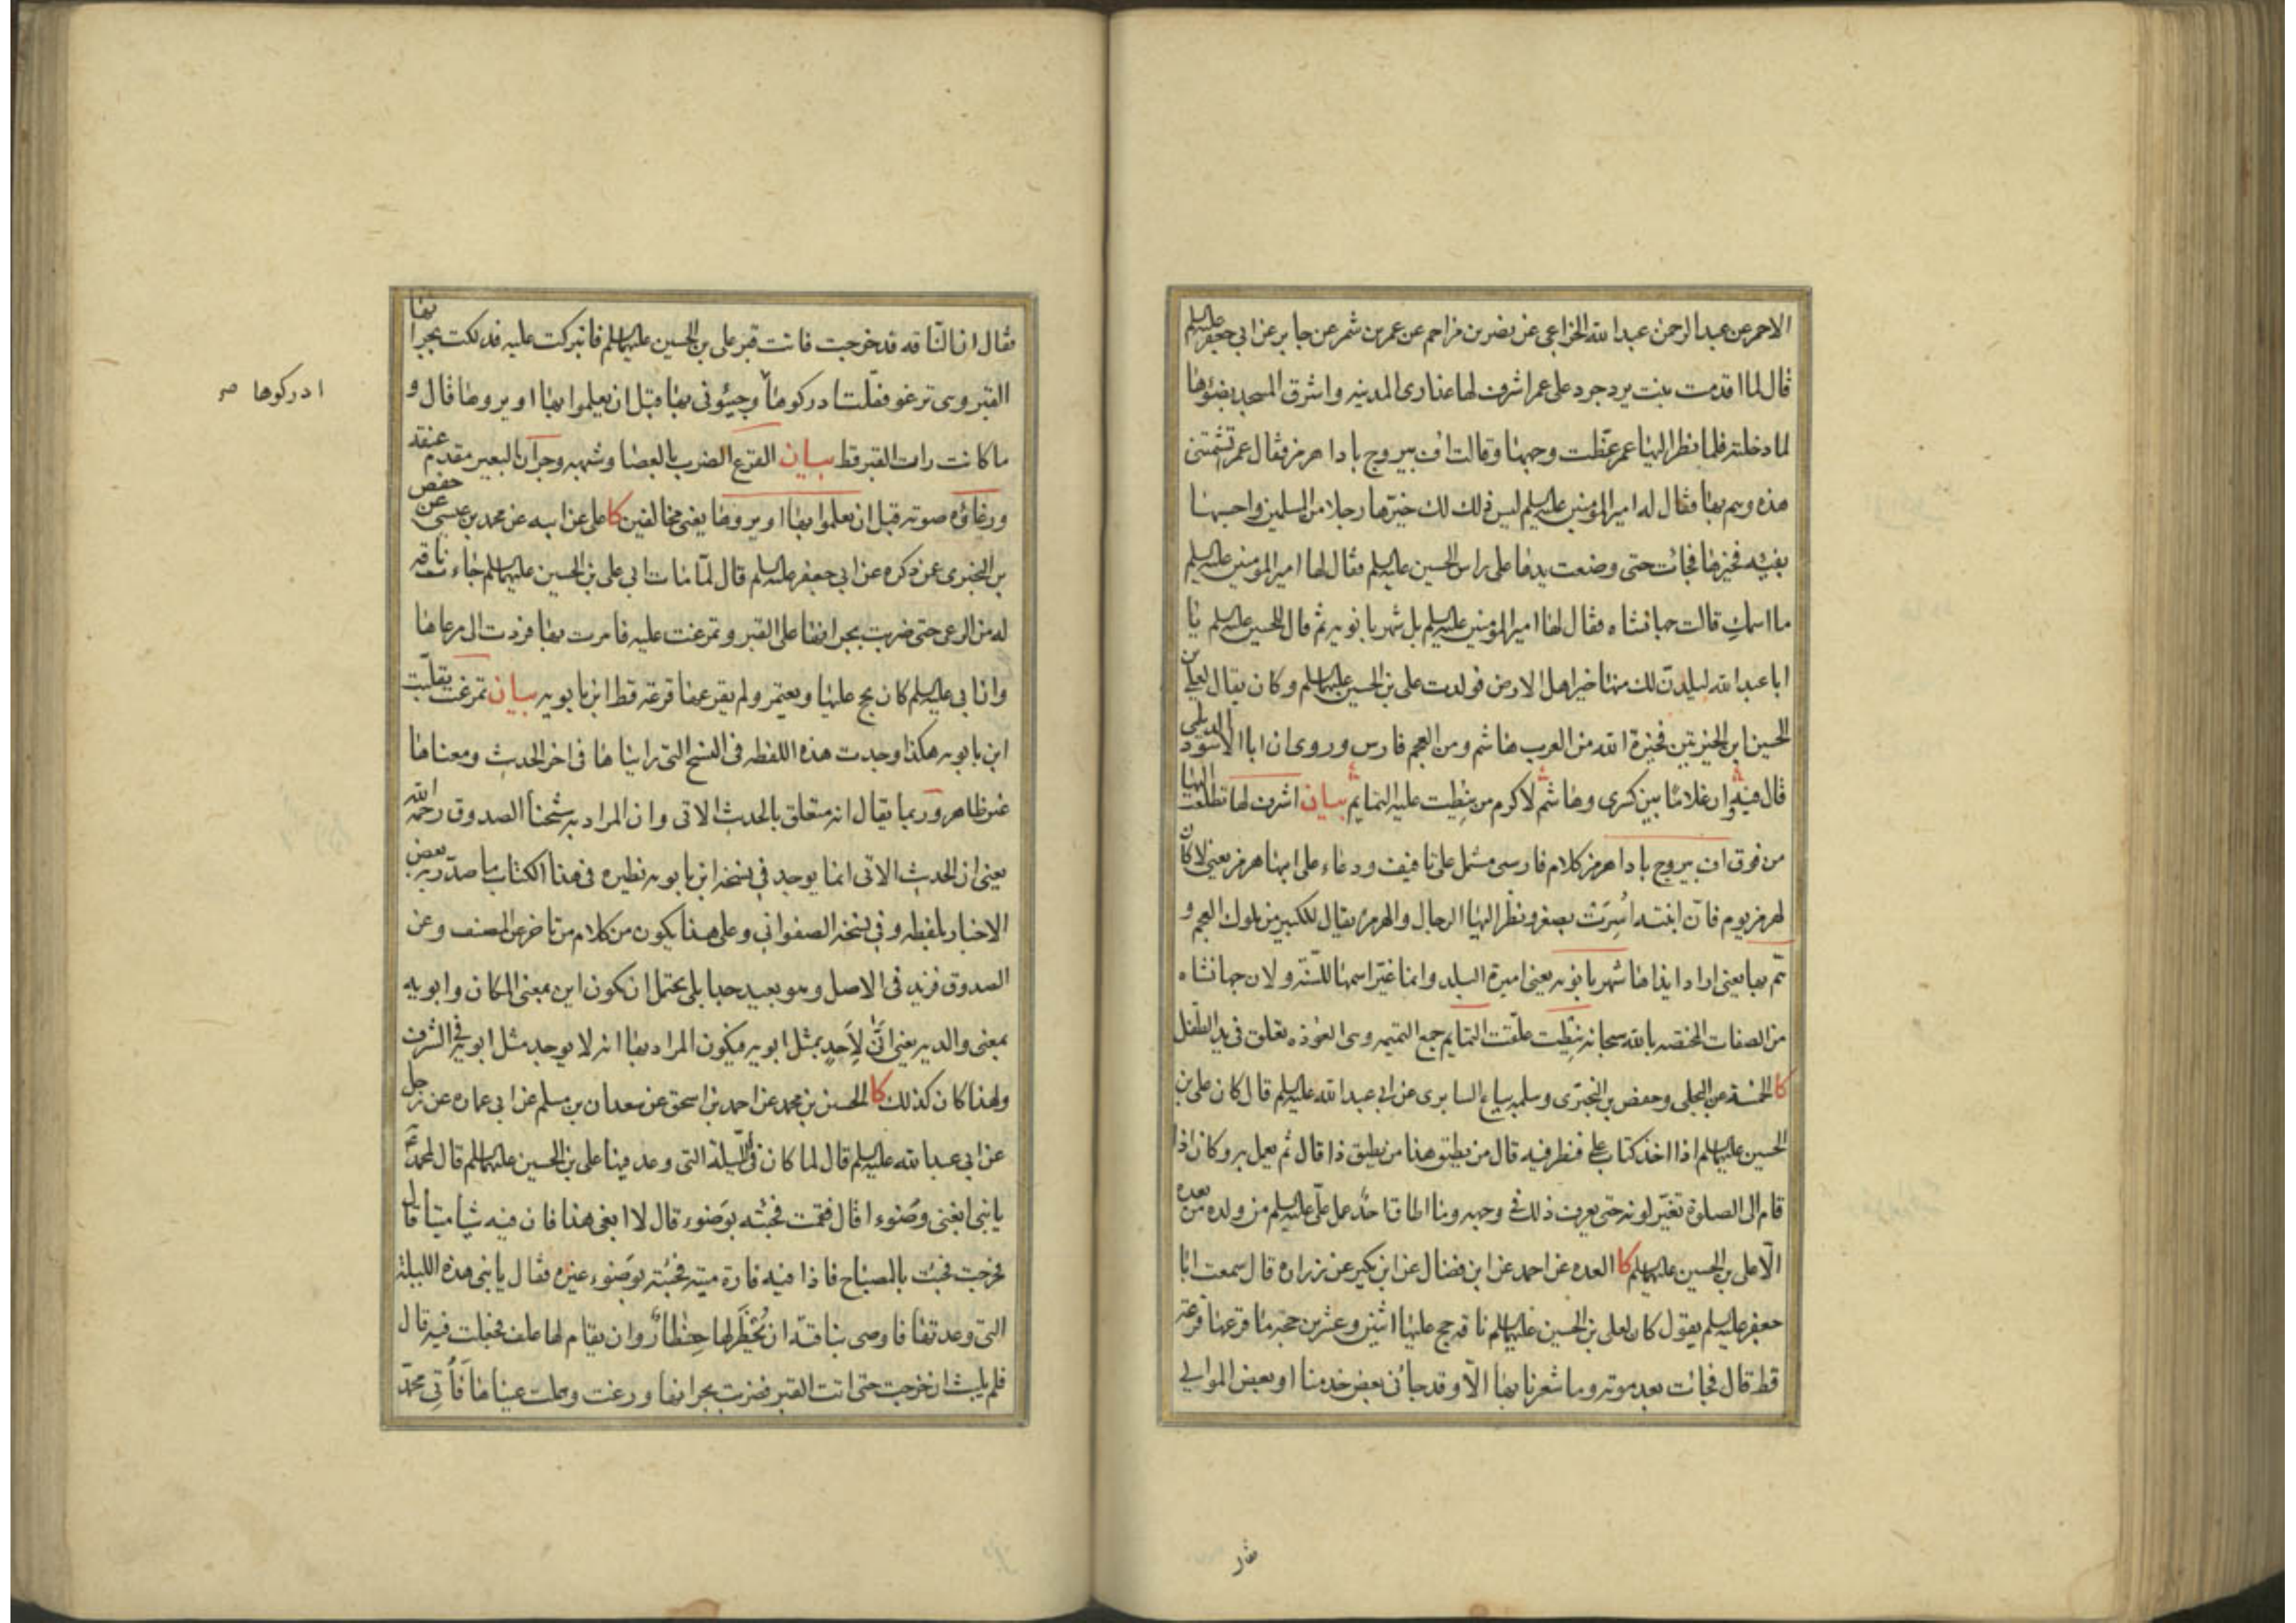 الاحمر عن عبد الرحمن عبد الله الخزاعي عن نصر بن مزاحم عن عمر بن شمر عن جابر عن ابي جعفر عليه السلم
قال لما اقدمت بنت يزدجرد على عمر اشرف لها عذارى المدينه واشرق المسجد بضوئها
لما دخلته فلما نظر اليها عمر غطت وجهها وقالت اف بيروج بادا هرمز فقال عمر تشتمني
هذه وهم بها فقال له امير المؤمنين عليه السلم ليس ذلك لك خيرها رجلا من المسلمين واحسبها
بفيئه فخيرها فجائت حتى وضعت يدها على راس الحسين عليه السلم فقال لها امير المؤمنين عليه السلم
ما اسمك قالت جهانشاه فقال لها امير المؤمنين عليه السلم بل شهربانويه ثم قال للحسين عليه السلم يا
ابا عبد الله لیلدن لك منها خير اهل الارض فولدت على بن الحسين عليهما السلم وكان يقال لعلي بن
الحسين ابن الخيرتين فخيرة الله من العرب هاشم ومن العجم فارس وروى ان ابا الاسود الديلمي
قال فيه وان غلاما بين كسرى وهاشم لاكرم من نيطت عليه التمايم بيان اشرف لها تطلعت اليها
من فوق اف بيروج بادا هرمز كلام فارسى مشتمل على تافيف ودعاء على ابيها هرمز يعني لا كان
لهرمز يوم فان ابنته اسرت بصغر ونظر اليها الرجال والهرمز يقال للكبير من ملوك العجم و
هم بها يعنى اراد ايذاها شهربانويه يعني اميرة البلد وانما غير اسمها للسنة ولان جهانشاه
من الصفات المختصه بالله سبحانه نيطت علقت التمايم جمع التميمه وهى العوذه تعلق فى يد الطفل
كا الخمسة عن البجلى وحفص بن البخترى وسلمه بياع السابرى عن ابي عبد الله عليه السلم قال كان على بن
الحسين عليهما السلم اذا اخذ كتاب علي فنظر فيه قال من يطيق هذا من يطيق ذا قال ثم يعمل به وكان اذا
قام الى الصلوة تغير لونه حتى يعرف ذلك في وجهه وما اطاق احد عمل علي عليه السلم من ولده من بعده
الا على بن الحسين عليهما السلم كا العده عن احمد عن ابن فضال عن ابن بكير عن زراره قال سمعت ابا
جعفر عليه السلم يقول كان لعلى بن الحسين عليهما السلم ناقه حج عليها اثنين وعشرين حجه ما قرعها قرعة
قط قال فجائت بعد موته وما شعرنا بها الا وقد جائنى بعض خدمنا او بعض الموالي
فقال ان الناقه قد خرجت فاتت قبر على بن الحسين عليهما السلم فانبركت عليه فدلكت بجرانها
القبر وهى ترغو فقلت ادركوها وجيئونى بها قبل ان يعلموا بها او يروها قال و
ما كانت رات القبر قط بيان القرع الضرب بالعصا وشبهه وجران البعير مقدم عنقه
ورغاؤه صوته قبل ان يعلموا بها او يروها يعنى مخالفين كا على عن ابيه عن محمد بن عيسى عن حفص
بن البخترى عمن ذكره عن ابي جعفر عليه السلم قال لما مات ابى على بن الحسين عليهما السلم جاءت ناقه
له من الرعى حتى ضربت بجرانها على القبر وتمرغت عليه فامرت بها فردت الى مرعاها
وان ابي عليه السلم كان يحج عليها ويعتمر ولم يقرعها قرعة قط ابن بابويه بيان تمرغت تقلبت
ابن بابويه هكذا وجدت هذه اللفظه فى النسخ التى رايناها فى اخر الحديث ومعناها
غير ظاهر وربما يقال انه متعلق بالحديث الاتى وان المراد به شيخنا الصدوق رحمه الله
يعنى ان الحديث الاتى انما يوجد في نسخه ابن بابويه نظيره فى هذا الكتاب ما صدر به بعض
الاخبار بلفظه وفي نسخه الصفوانى وعلى هذا يكون من كلام من تاخر عن المصنف وعن
الصدوق فزيد فى الاصل وهو بعيد جدا بل يحتمل ان تكون اين بمعنى المكان وابويه
بمعنى والديه يعنى انى لاحد بمثل ابويه فيكون المراد بها انه لا يوجد مثل ابويه في الشرف
ولهذا كان كذلك كا الحسين بن محمد عن احمد بن اسحق عن سعدان بن مسلم عن ابى عماره عن رجل
عن ابي عبد الله عليه السلم قال لما كان فى الليلة التى وعد فيها على بن الحسين عليهما السلم قال لمحمد
يا بنى ابغنى وضوءا قال فقمت فجئته بوضوء قال لا ابغى هذا فان فيه شيئا ميتا قال
فخرجت فجئت بالمصباح فاذا فيه فارة ميته فجئته بوضوء غيره فقال يا بنى هذه الليلة
التى وعدتها فاوصى بناقته ان يحظر لها حظار وان يقام لها علف فجعلت فيه قال
فلم يلبث ان خرجت حتى اتت القبر فضربت بجرانها ورغت وهملت عيناها فأتي محمد
ادركوها صـ